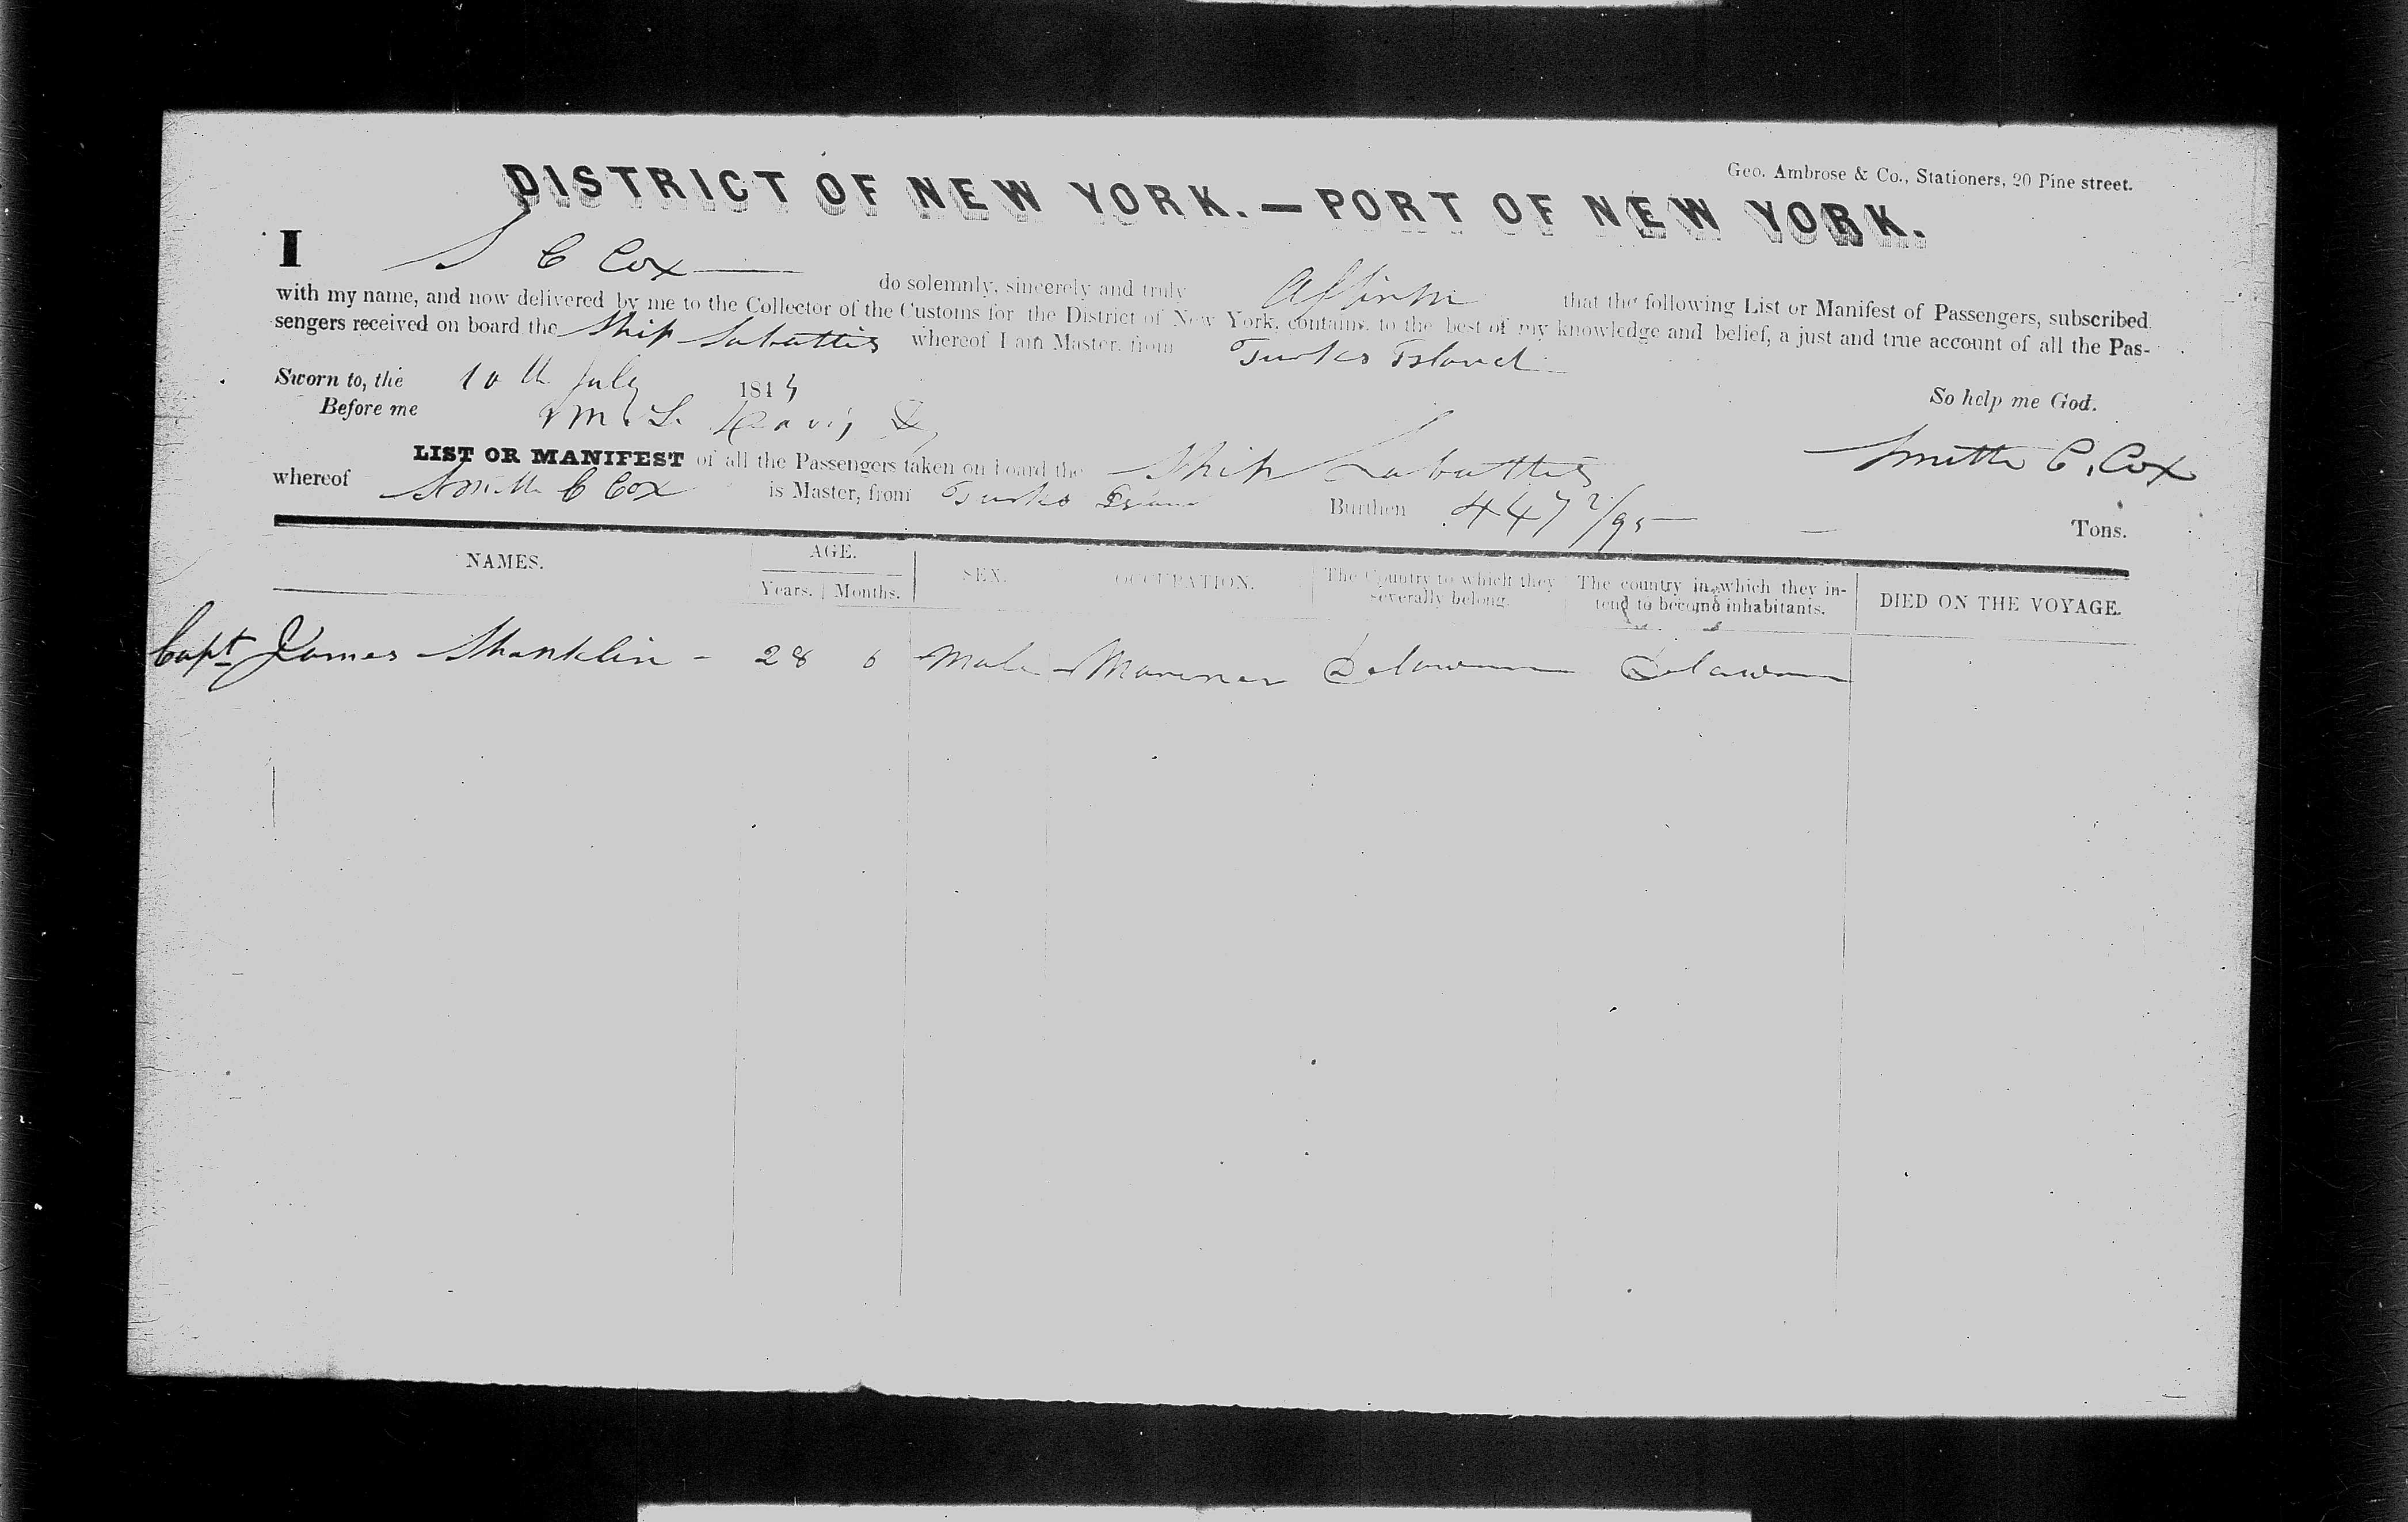 Geo. Ambrose & Co., Stationers, 20 Pine street.
DISTRICT OF NEW YORK.—PORT OF NEW YORK.
I S C Cox do solemnly, sincerely and truly Affirm that the following List or Manifest of Passengers, subscribed
with my name, and now delivered by me to the Collector of the Customs for the District of New York, contains, to the best of my knowledge and belief, a just and true account of all the Pas-
sengers received on board the Ship Sabattis whereof I am Master, from Turks Island
Sworn to, the 10th July 184
So help me God.
Before me Wm S. Davis
Smith C. Cox
LIST OR MANIFEST of all the Passengers taken on board the Ship Sabattis
whereof Smith C Cox is Master, from Turks Island Burthen 447 2/95 Tons.
NAMES. AGE. SEX. OCCUPATION. The Country to which they The country in which they in- DIED ON THE VOYAGE.
Years. Months. severally belong. tend to become inhabitants.
Capt James Shanklin - 28 6 Male Mariner Delaware Delaware